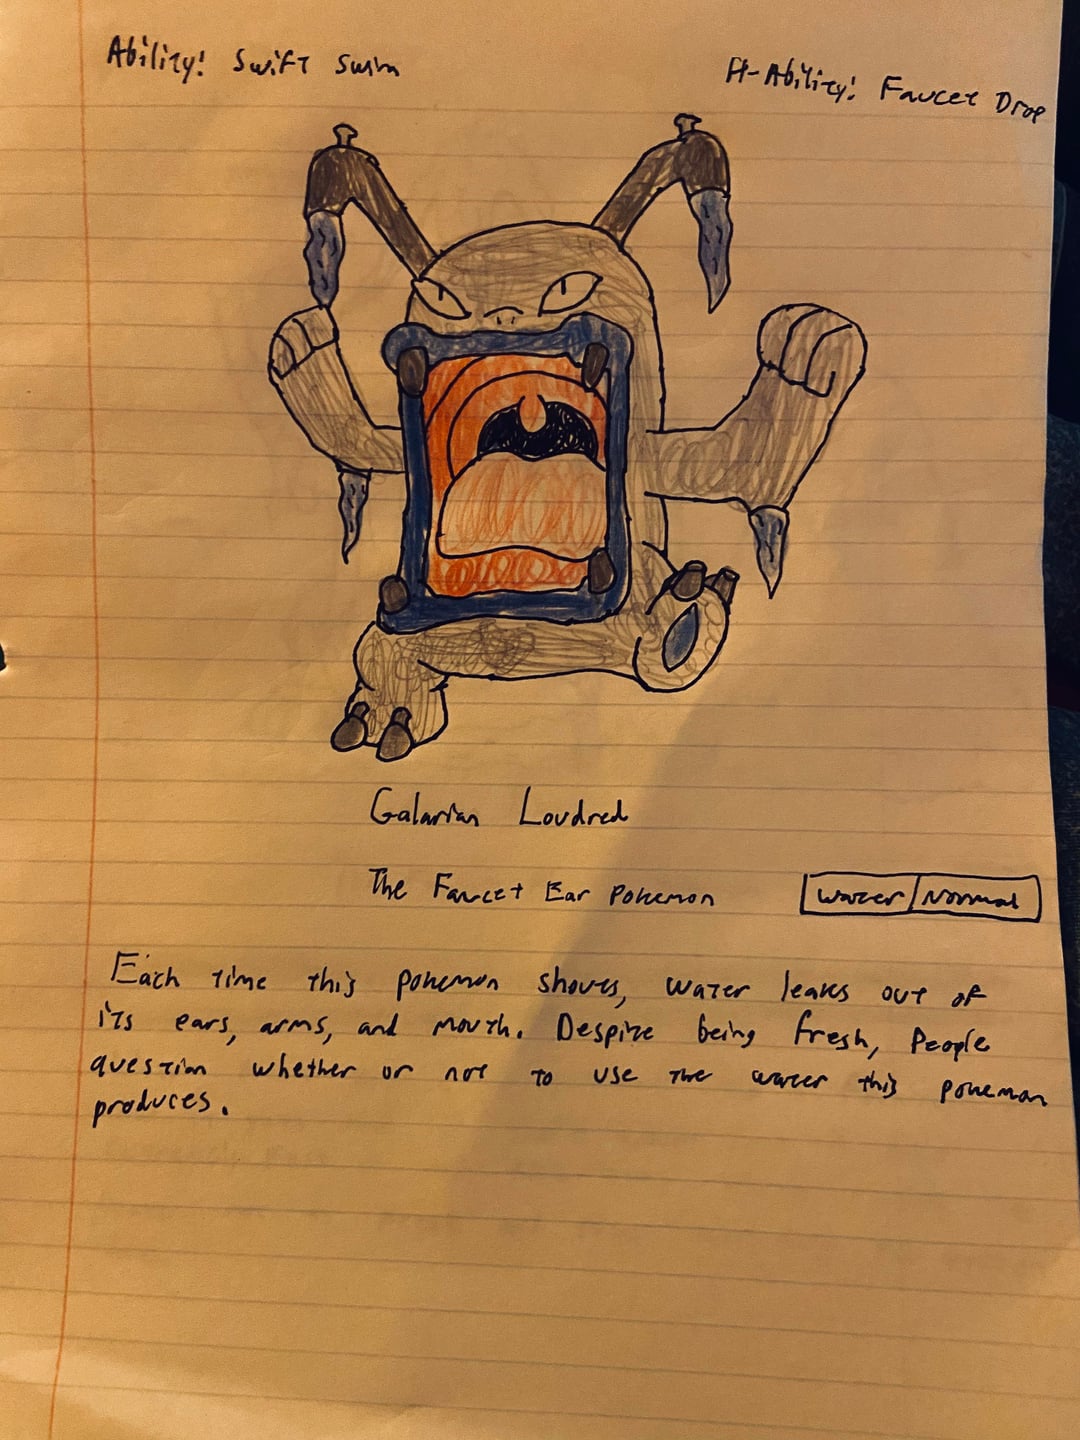 Ability: Swift Swim
H-Ability: Faucet Drop
Galarian Loudred
The Faucet Ear Pokemon
Water Normal
Each time this pokemon shouts, water leaks out of
its ears, arms, and mouth. Despite being fresh, People
question whether or not to use the water this pokemon
produces.